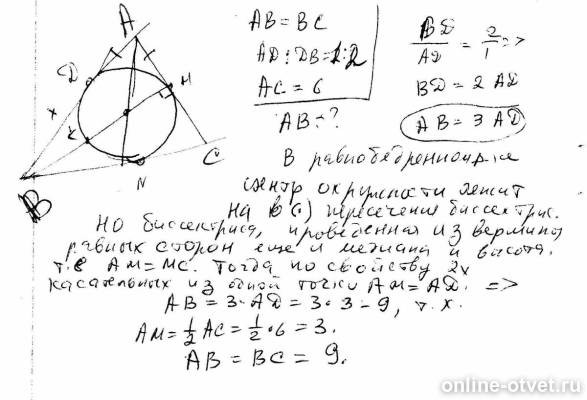 A
D
H
x
K
B
N
C
AB = BC
AD : DB = 1:2
AC = 6
AB - ?
BD/AD = 2/1 =>
BD = 2 AD
AB = 3 AD
В равнобедренном
центр окружности лежит
На в (.) пересечение биссектрис.
Но биссектриса, проведенная из вершины
равных сторон еще и медиана и высота.
т.е AM = MC. Тогда по свойству 2х
касательных из одной точки AM = AD. =>
AB = 3·AD = 3·3 - 9, т.к.
AM = 1/2 AC = 1/2 · 6 = 3.
AB = BC = 9.
online-otvet.ru